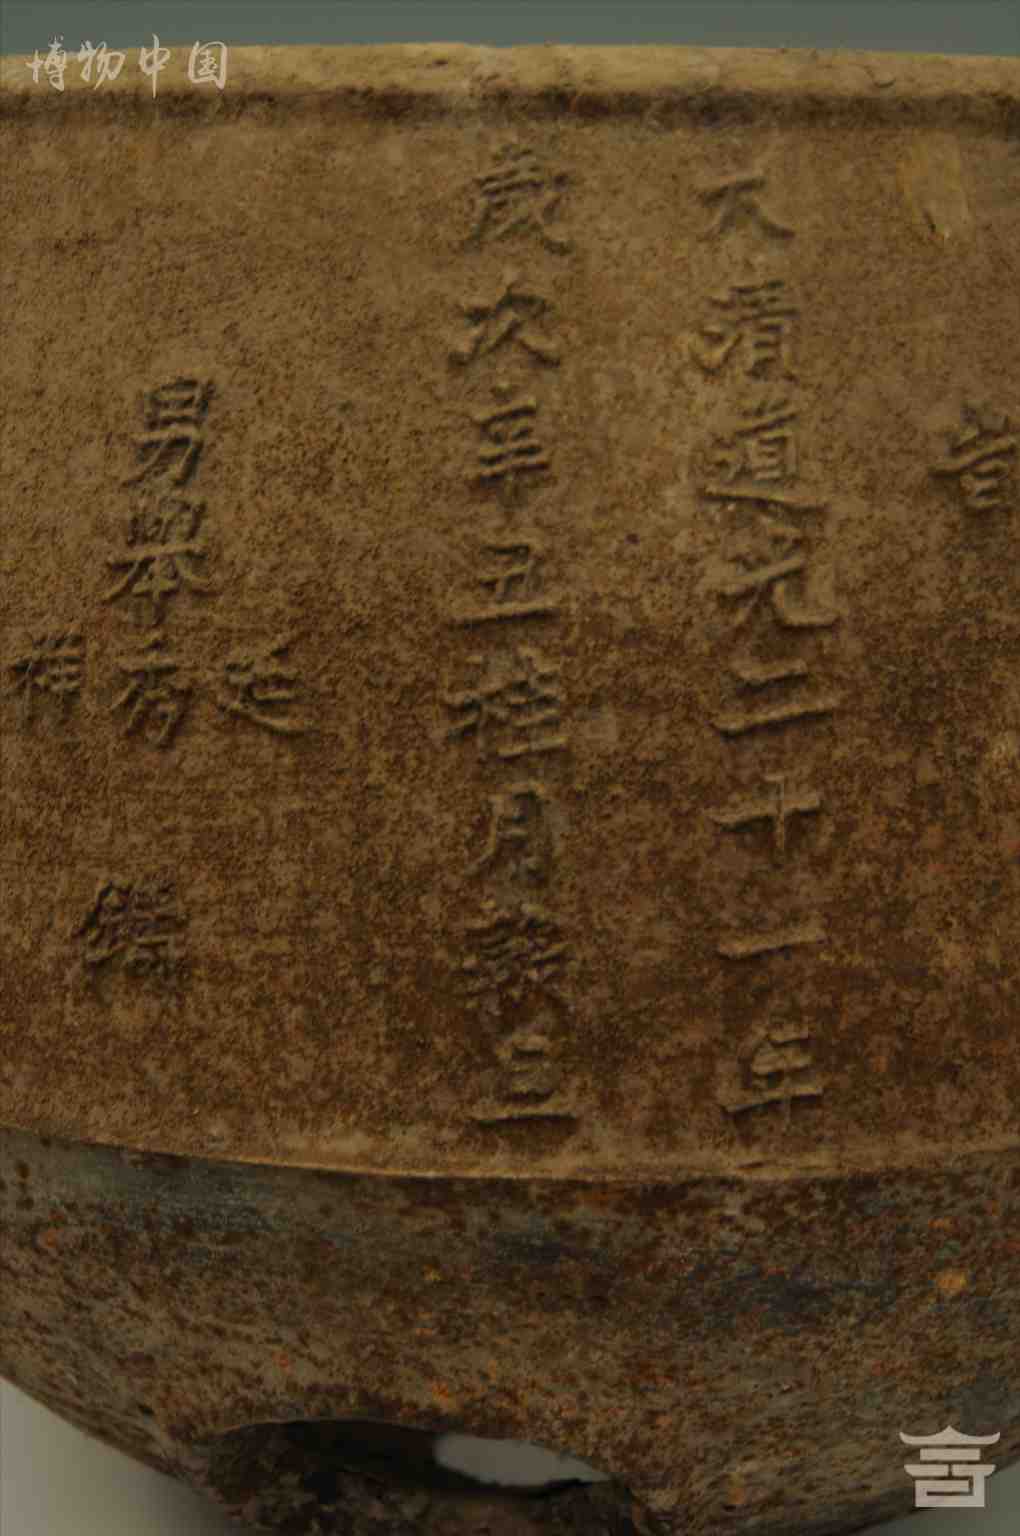 博物中国
吉
大清道光二十一年
歲次辛丑桂月榖三
男舉秀
延
祥
鑄